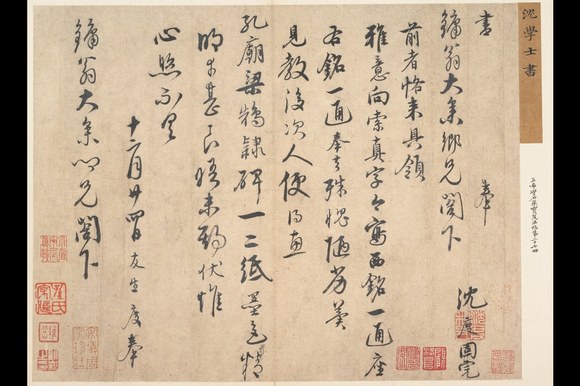 沈學士書
書 奉
鏞翁大參鄉兄閣下
沈度
前者恪來具領
雅意向索真字今寫西銘一通座
右銘一通奉去殊愧陋劣冀
見教後次人便得惠
孔廟梁鵠隸碑一二紙墨色精
明幸甚良晤未期伏惟
心照不具
十二月廿四日友生度奉
鏞翁大參心兄閣下